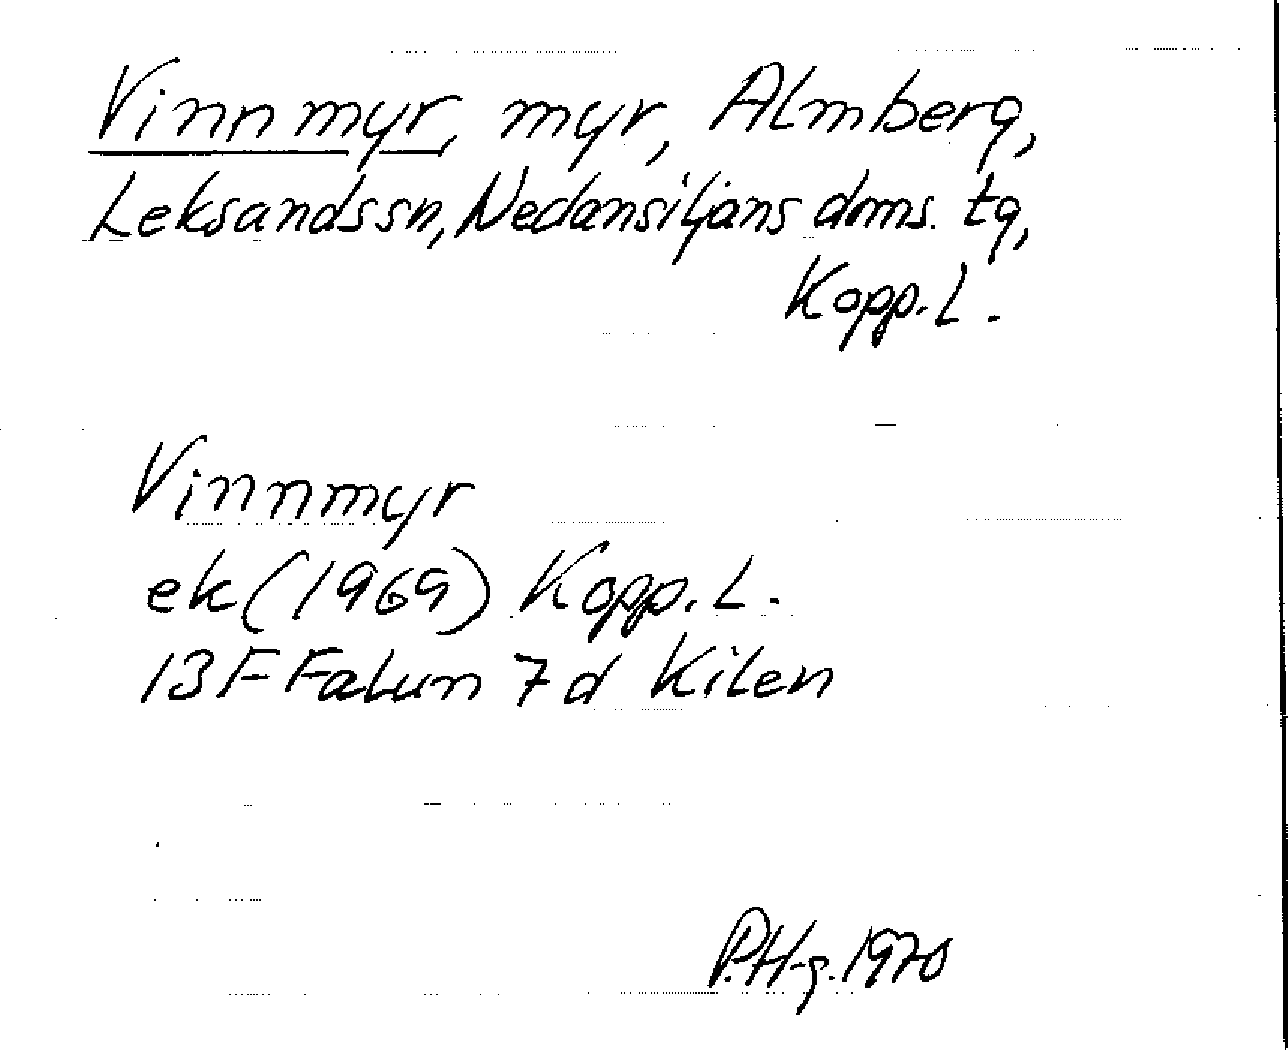 Vinnmyr, myr, Almberg,
Leksands sn, Nedansiljans doms. tg,
Kopp. L.
Vinnmyr
ek (1969) Kopp. L.
13F Falun 7d Kilen
P.H-g. 1970